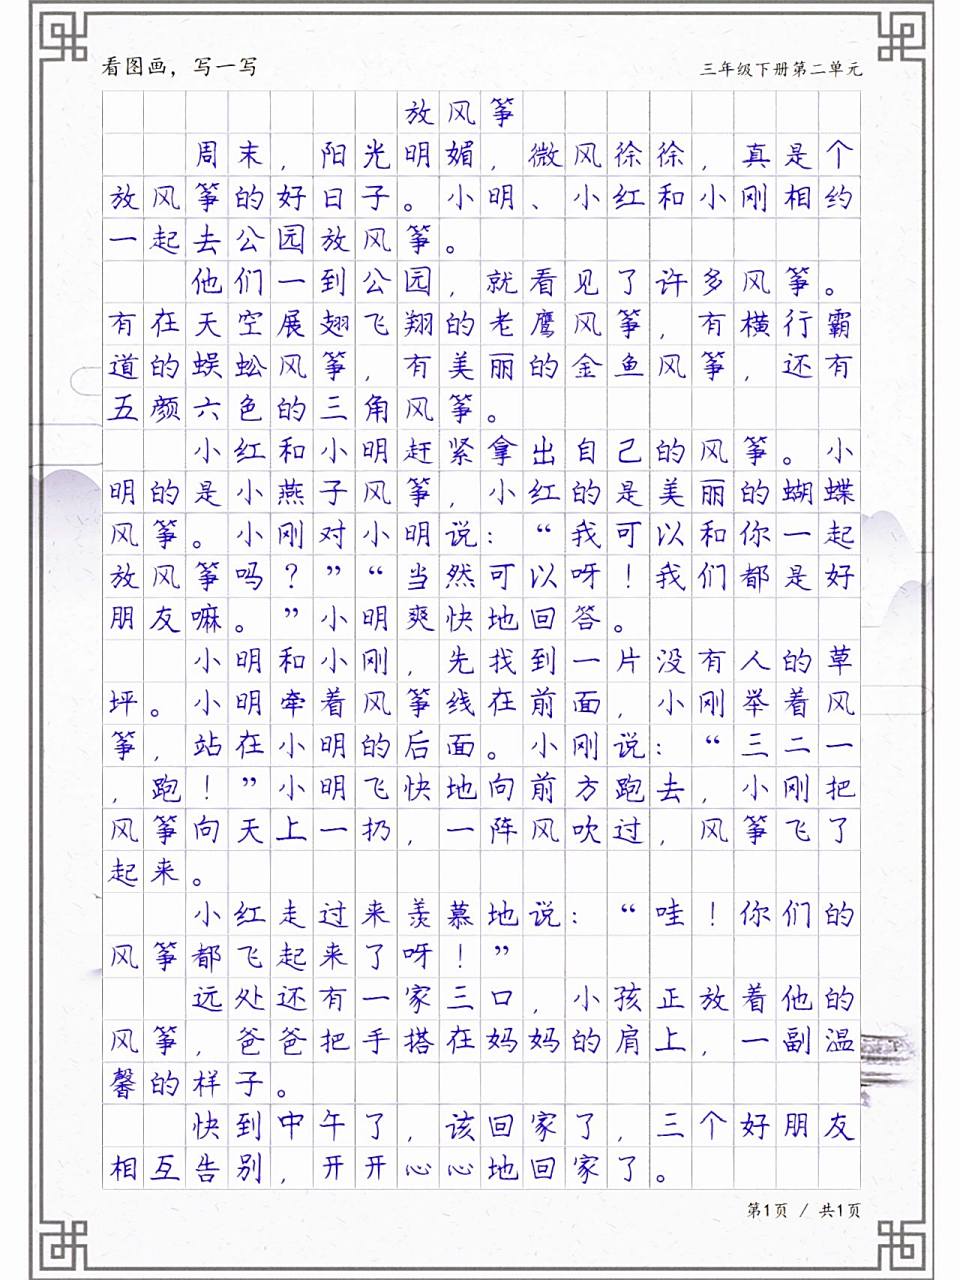 看图画，写一写
三年级下册第二单元
放风筝
周末，阳光明媚，微风徐徐，真是个
放风筝的好日子。小明、小红和小刚相约
一起去公园放风筝。
他们一到公园，就看见了许多风筝。
有在天空展翅飞翔的老鹰风筝，有横行霸
道的蜈蚣风筝，有美丽的金鱼风筝，还有
五颜六色的三角风筝。
小红和小明赶紧拿出自己的风筝。小
明的是小燕子风筝，小红的是美丽的蝴蝶
风筝。小刚对小明说：“我可以和你一起
放风筝吗？”“当然可以呀！我们都是好
朋友嘛。”小明爽快地回答。
小明和小刚，先找到一片没有人的草
坪。小明牵着风筝线在前面，小刚举着风
筝，站在小明的后面。小刚说：“三二一
，跑！”小明飞快地向前方跑去，小刚把
风筝向天上一扔，一阵风吹过，风筝飞了
起来。
小红走过来羡慕地说：“哇！你们的
风筝都飞起来了呀！”
远处还有一家三口，小孩正放着他的
风筝，爸爸把手搭在妈妈的肩上，一副温
馨的样子。
快到中午了，该回家了，三个好朋友
相互告别，开开心心地回家了。
第1页 / 共1页